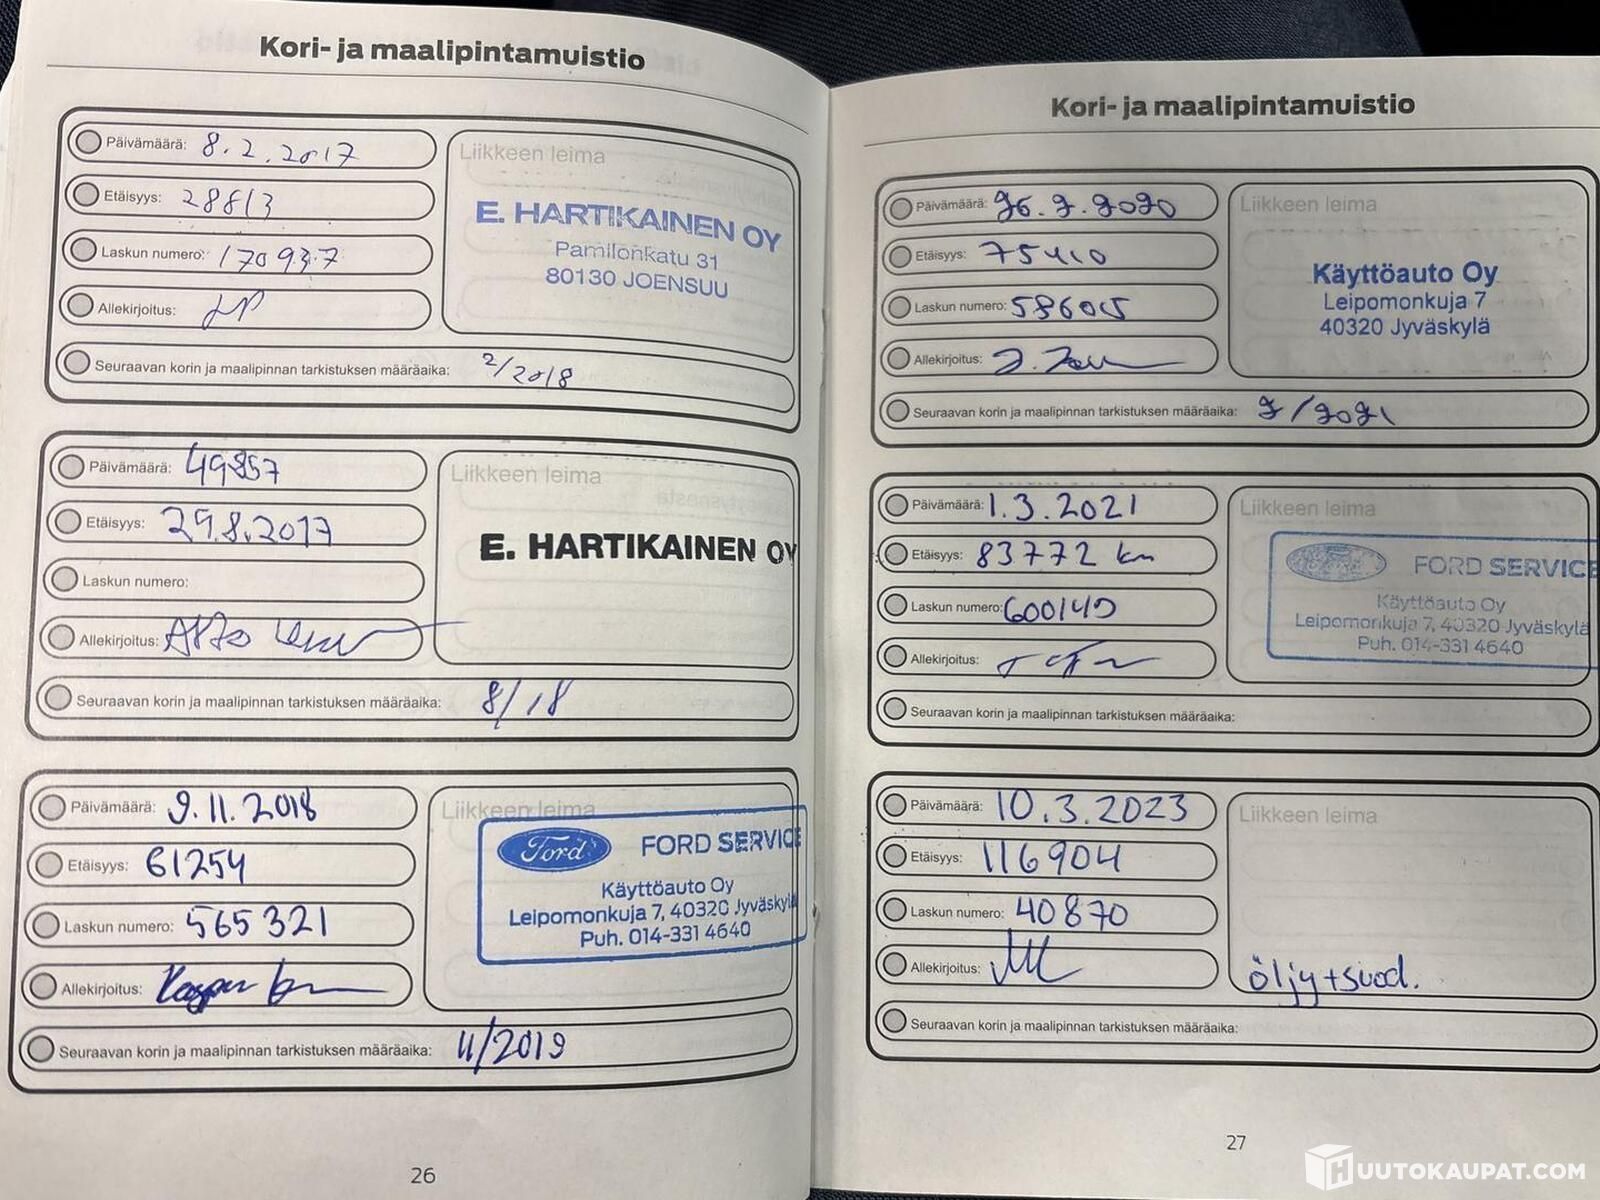 Kori- ja maalipintamuistio
Päivämäärä: 8.2.2017
Liikkeen leima
Etäisyys: 28813
E. HARTIKAINEN OY
Pamilonkatu 31
80130 JOENSUU
Laskun numero: 170937
Allekirjoitus:
Seuraavan korin ja maalipinnan tarkistuksen määräaika: 2/2018
Päivämäärä: 49857
Liikkeen leima
Etäisyys: 29.8.2017
E. HARTIKAINEN OY
Laskun numero:
Allekirjoitus:
Seuraavan korin ja maalipinnan tarkistuksen määräaika: 8/18
Päivämäärä: 9.11.2018
Liikkeen leima
Etäisyys: 61254
Ford FORD SERVICE
Käyttöauto Oy
Leipomonkuja 7, 40320 Jyväskylä
Puh. 014-331 4640
Laskun numero: 565321
Allekirjoitus:
Seuraavan korin ja maalipinnan tarkistuksen määräaika: 11/2019
26
Kori- ja maalipintamuistio
Päivämäärä: 26.2.2020
Liikkeen leima
Etäisyys: 75410
Käyttöauto Oy
Leipomonkuja 7
40320 Jyväskylä
Laskun numero: 586015
Allekirjoitus:
Seuraavan korin ja maalipinnan tarkistuksen määräaika: 2/2021
Päivämäärä: 1.3.2021
Liikkeen leima
Etäisyys: 83772 km
FORD SERVICE
Käyttöauto Oy
Leipomonkuja 7, 40320 Jyväskylä
Puh. 014-331 4640
Laskun numero: 600149
Allekirjoitus:
Seuraavan korin ja maalipinnan tarkistuksen määräaika:
Päivämäärä: 10.3.2023
Liikkeen leima
Etäisyys: 116904
Laskun numero: 40870
Allekirjoitus:
öljy+suod.
Seuraavan korin ja maalipinnan tarkistuksen määräaika:
27
HUUTOKAUPAT.COM